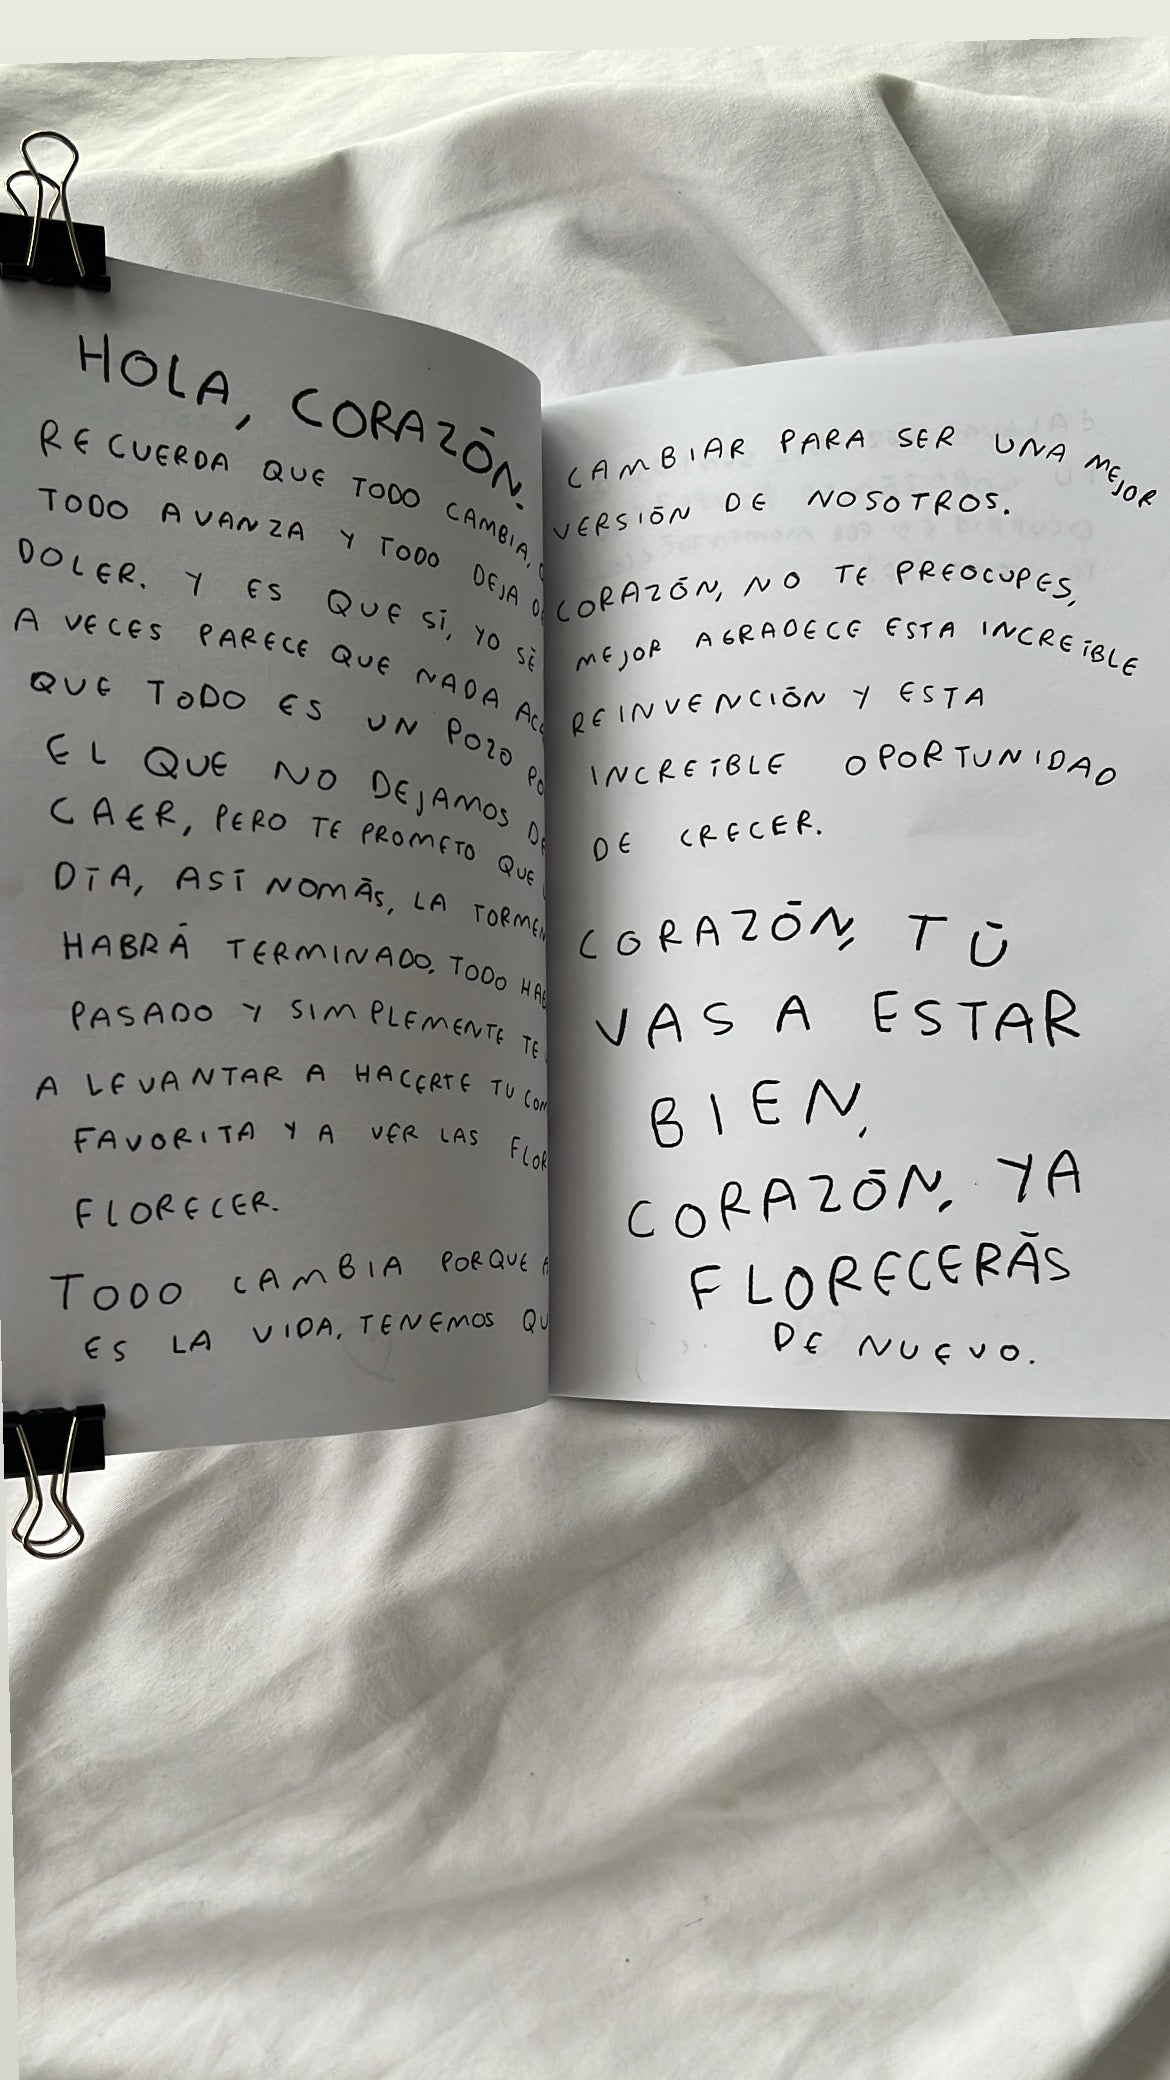 HOLA, CORAZÓN.
RECUERDA QUE TODO CAMBIA,
TODO AVANZA Y TODO DEJA
DOLER. Y ES QUE SÍ, YO SÉ
A VECES PARECE QUE NADA
QUE TODO ES UN POZO
EL QUE NO DEJAMOS DE
CAER, PERO TE PROMETO QUE
DÍA, ASÍ NOMÁS, LA
HABRÁ TERMINADO, TODO
PASADO Y SIMPLEMENTE TE
A LEVANTAR A HACERTE TU
FAVORITA Y A VER LAS
FLORECER.
TODO CAMBIA PORQUE
ES LA VIDA, TENEMOS
CAMBIAR PARA SER UNA MEJOR
VERSIÓN DE NOSOTROS.
CORAZÓN, NO TE PREOCUPES,
MEJOR AGRADECE ESTA INCREÍBLE
REINVENCIÓN Y ESTA
INCREÍBLE OPORTUNIDAD
DE CRECER.
CORAZÓN, TÚ
VAS A ESTAR
BIEN,
CORAZÓN, YA
FLORECERÁS
DE NUEVO.